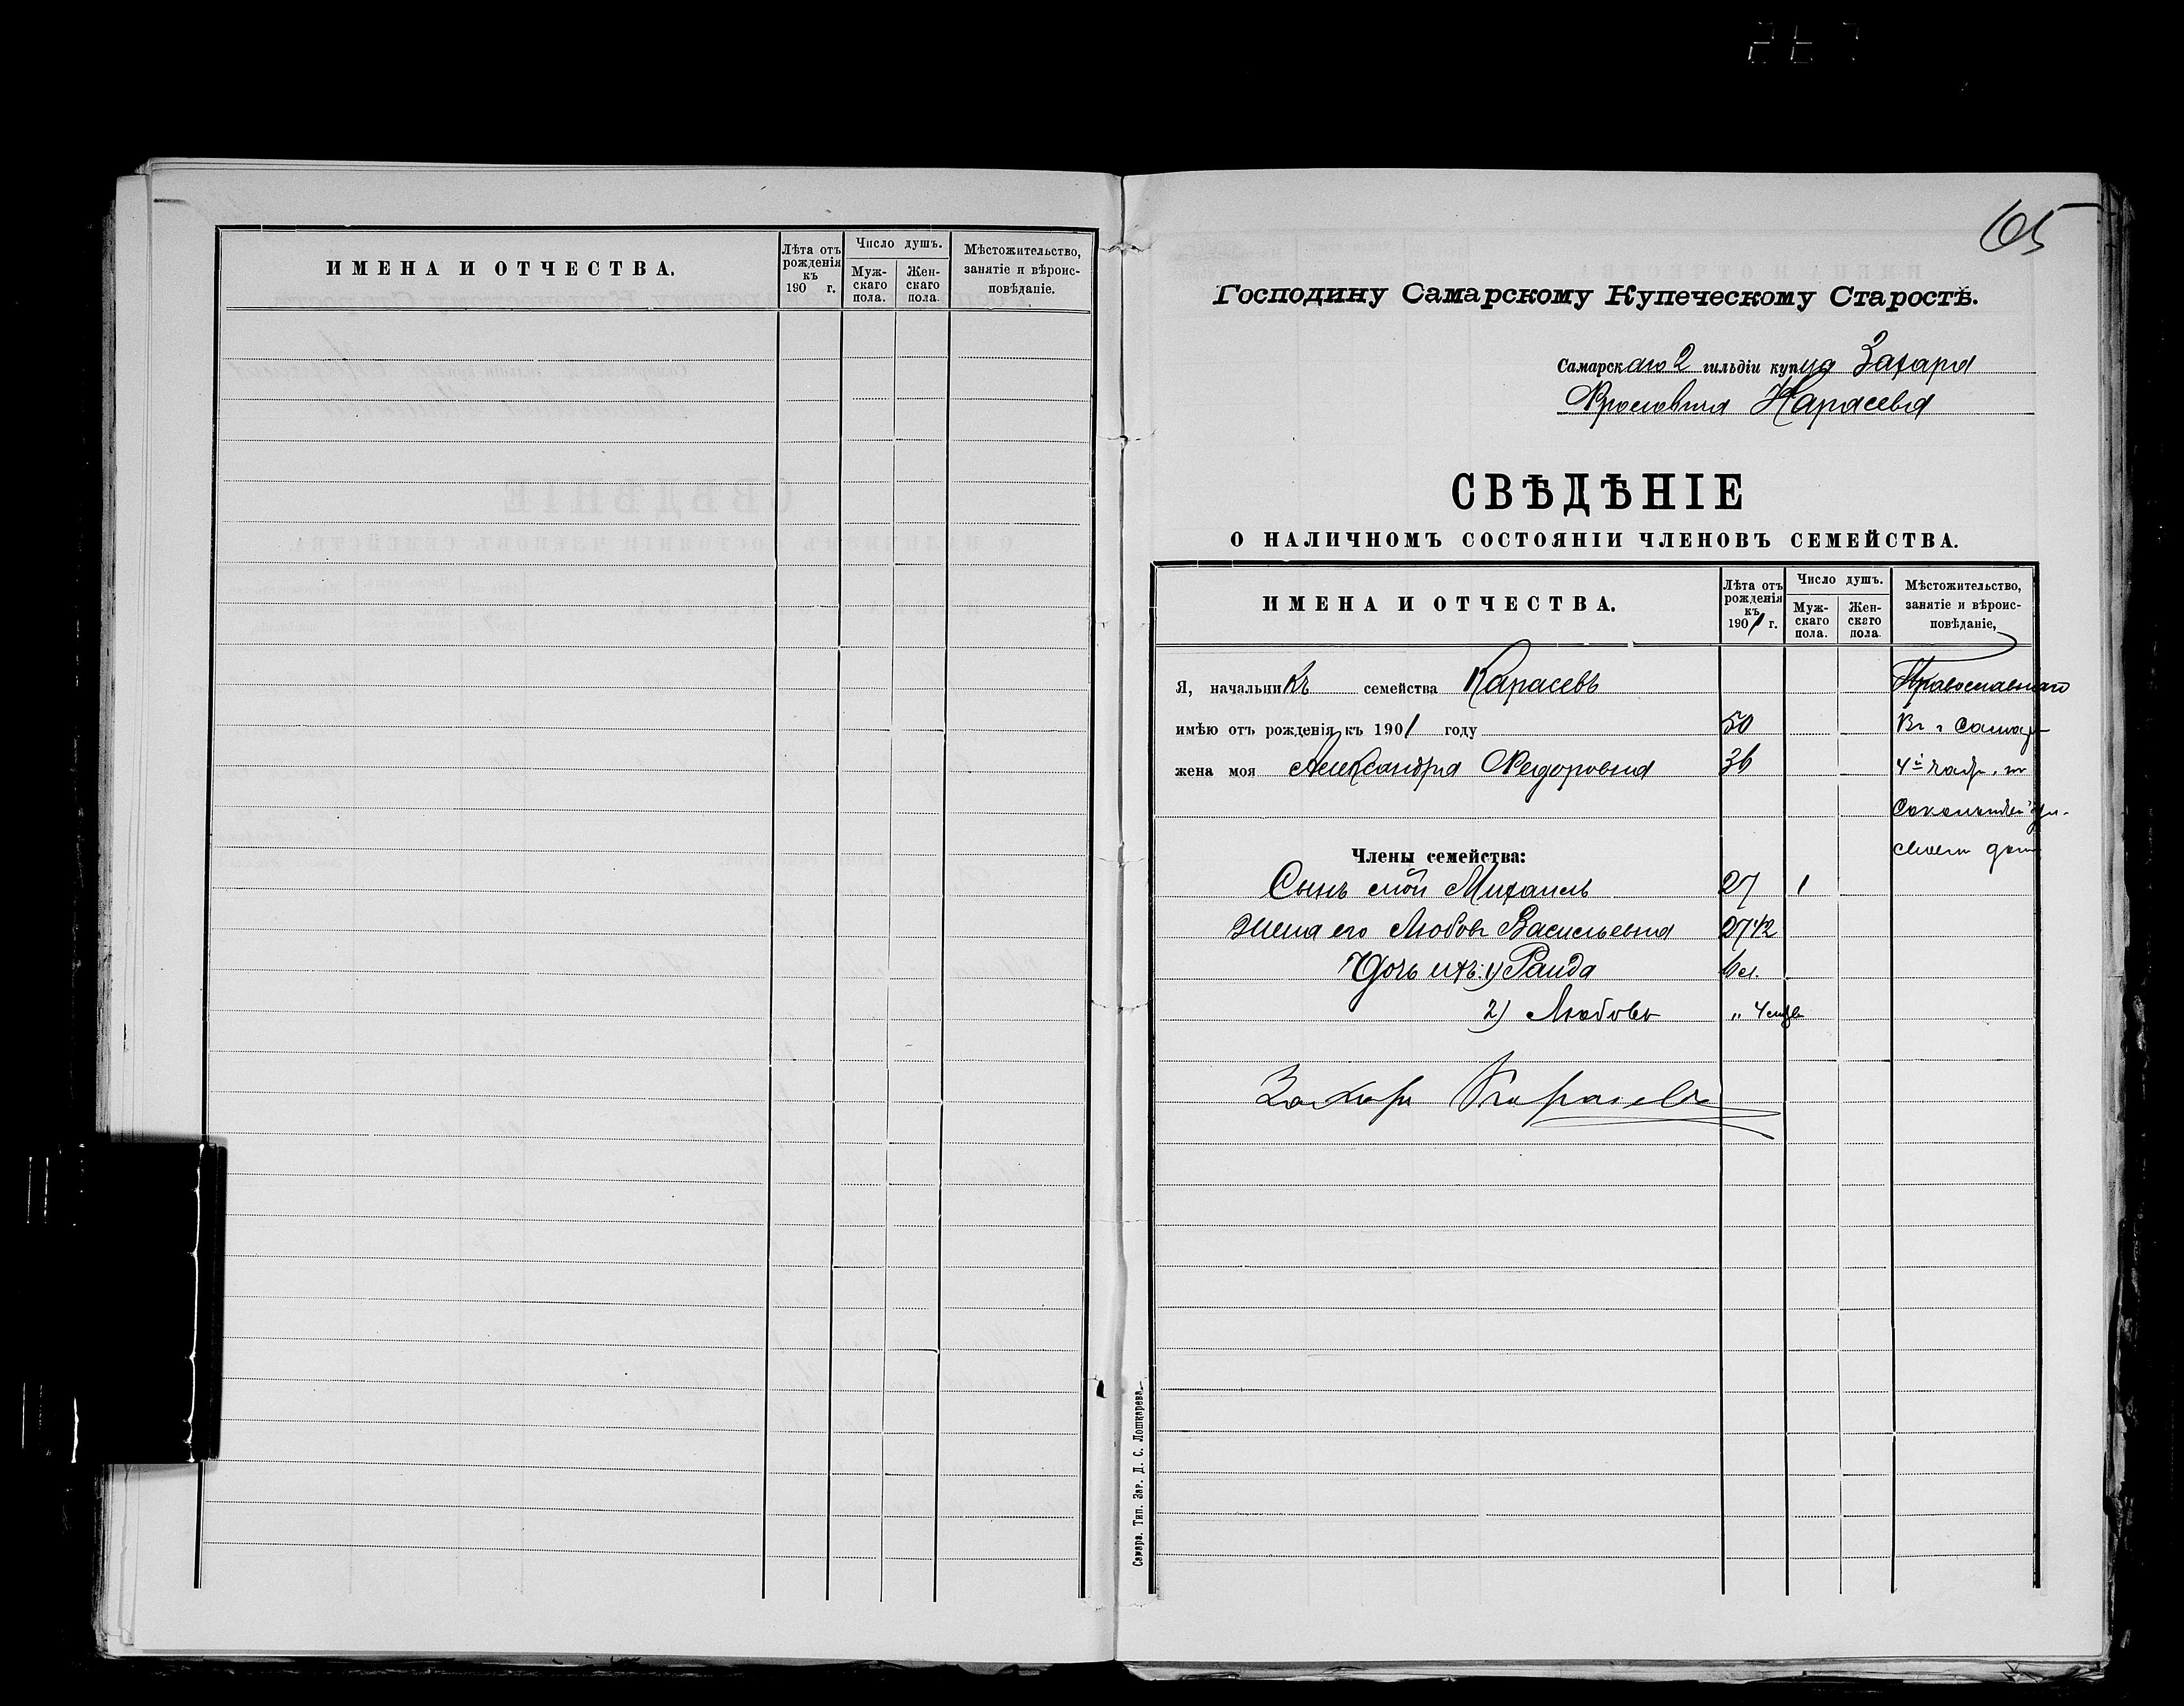 ИМЕНА И ОТЧЕСТВА.
Лѣта отъ рожденія къ 190 г.
Число душъ.
Мужскаго пола.
Женскаго пола.
Мѣстожительство, занятіе и вѣроисповѣданіе.
65
Господину Самарскому Купеческому Старостѣ.
Самарскаго 2 гильдіи купца Захара
Фроловича Карасева
СВѢДѢНІЕ
О НАЛИЧНОМЪ СОСТОЯНІИ ЧЛЕНОВЪ СЕМЕЙСТВА.
ИМЕНА И ОТЧЕСТВА.
Лѣта отъ рожденія къ 1901 г.
Число душъ.
Мужскаго пола.
Женскаго пола.
Мѣстожительство, занятіе и вѣроисповѣданіе,
Я, начальникъ семейства Карасевъ Православнаго
имѣю отъ рожденія къ 1901 году 50 Въ г Самар
жена моя Александра Федоровна 36 4й части, по
своемъ дом
Члены семейства:
Сынъ мой Михаилъ 27 1
Жена его Любовь Васильевна 27 1/2
Дочь ихъ: 1) Раида
2) Любовь " 4 мѣс
Захаръ Карасевъ
Самара. Тип. Зав. Д. С. Лошкарева.